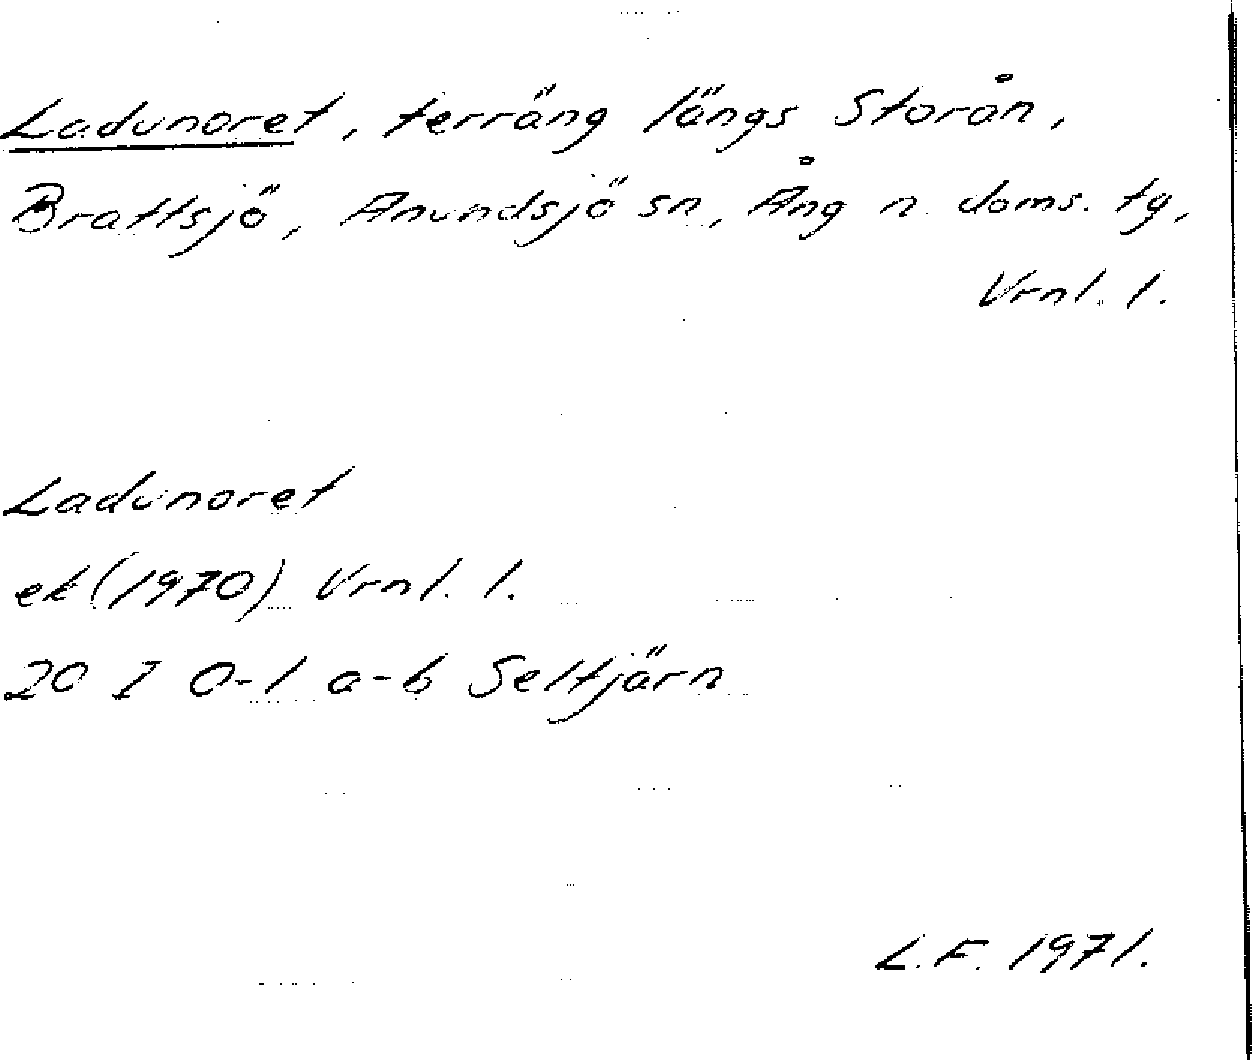 Ladunoret, terräng längs Storån,
Brattsjö, Anundsjö sn, Ång n. doms. tg,
Vrnl. l.
Ladunoret
ek (1970) Vrnl. l.
20 I 0-1 a-b Seltjärn
L.F. 1971.